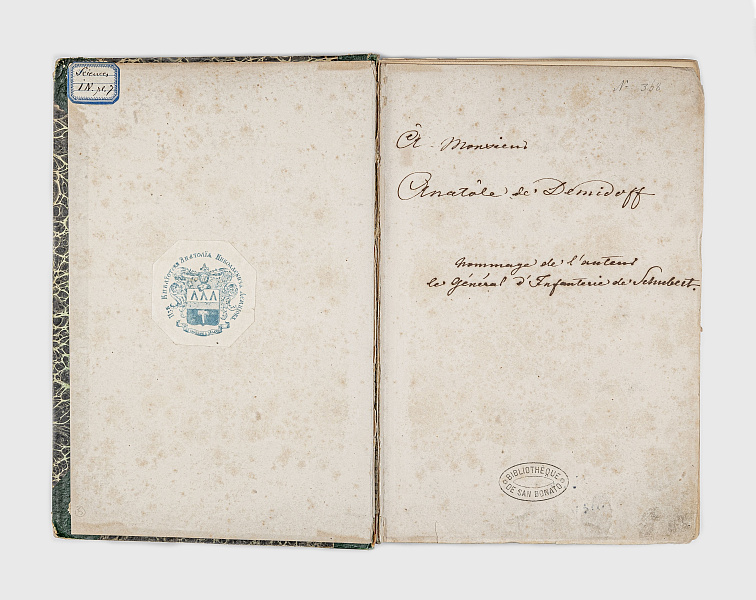 Sciences
IN. pl. 7
Изъ Книгохран. Анатолія Николаевича Демидова
N° 306
À Monsieur
Anatôle de Demidoff
hommage de l'auteur
le Général d'Infanterie de Schubert.
BIBLIOTHÈQUE
DE SAN DONATO